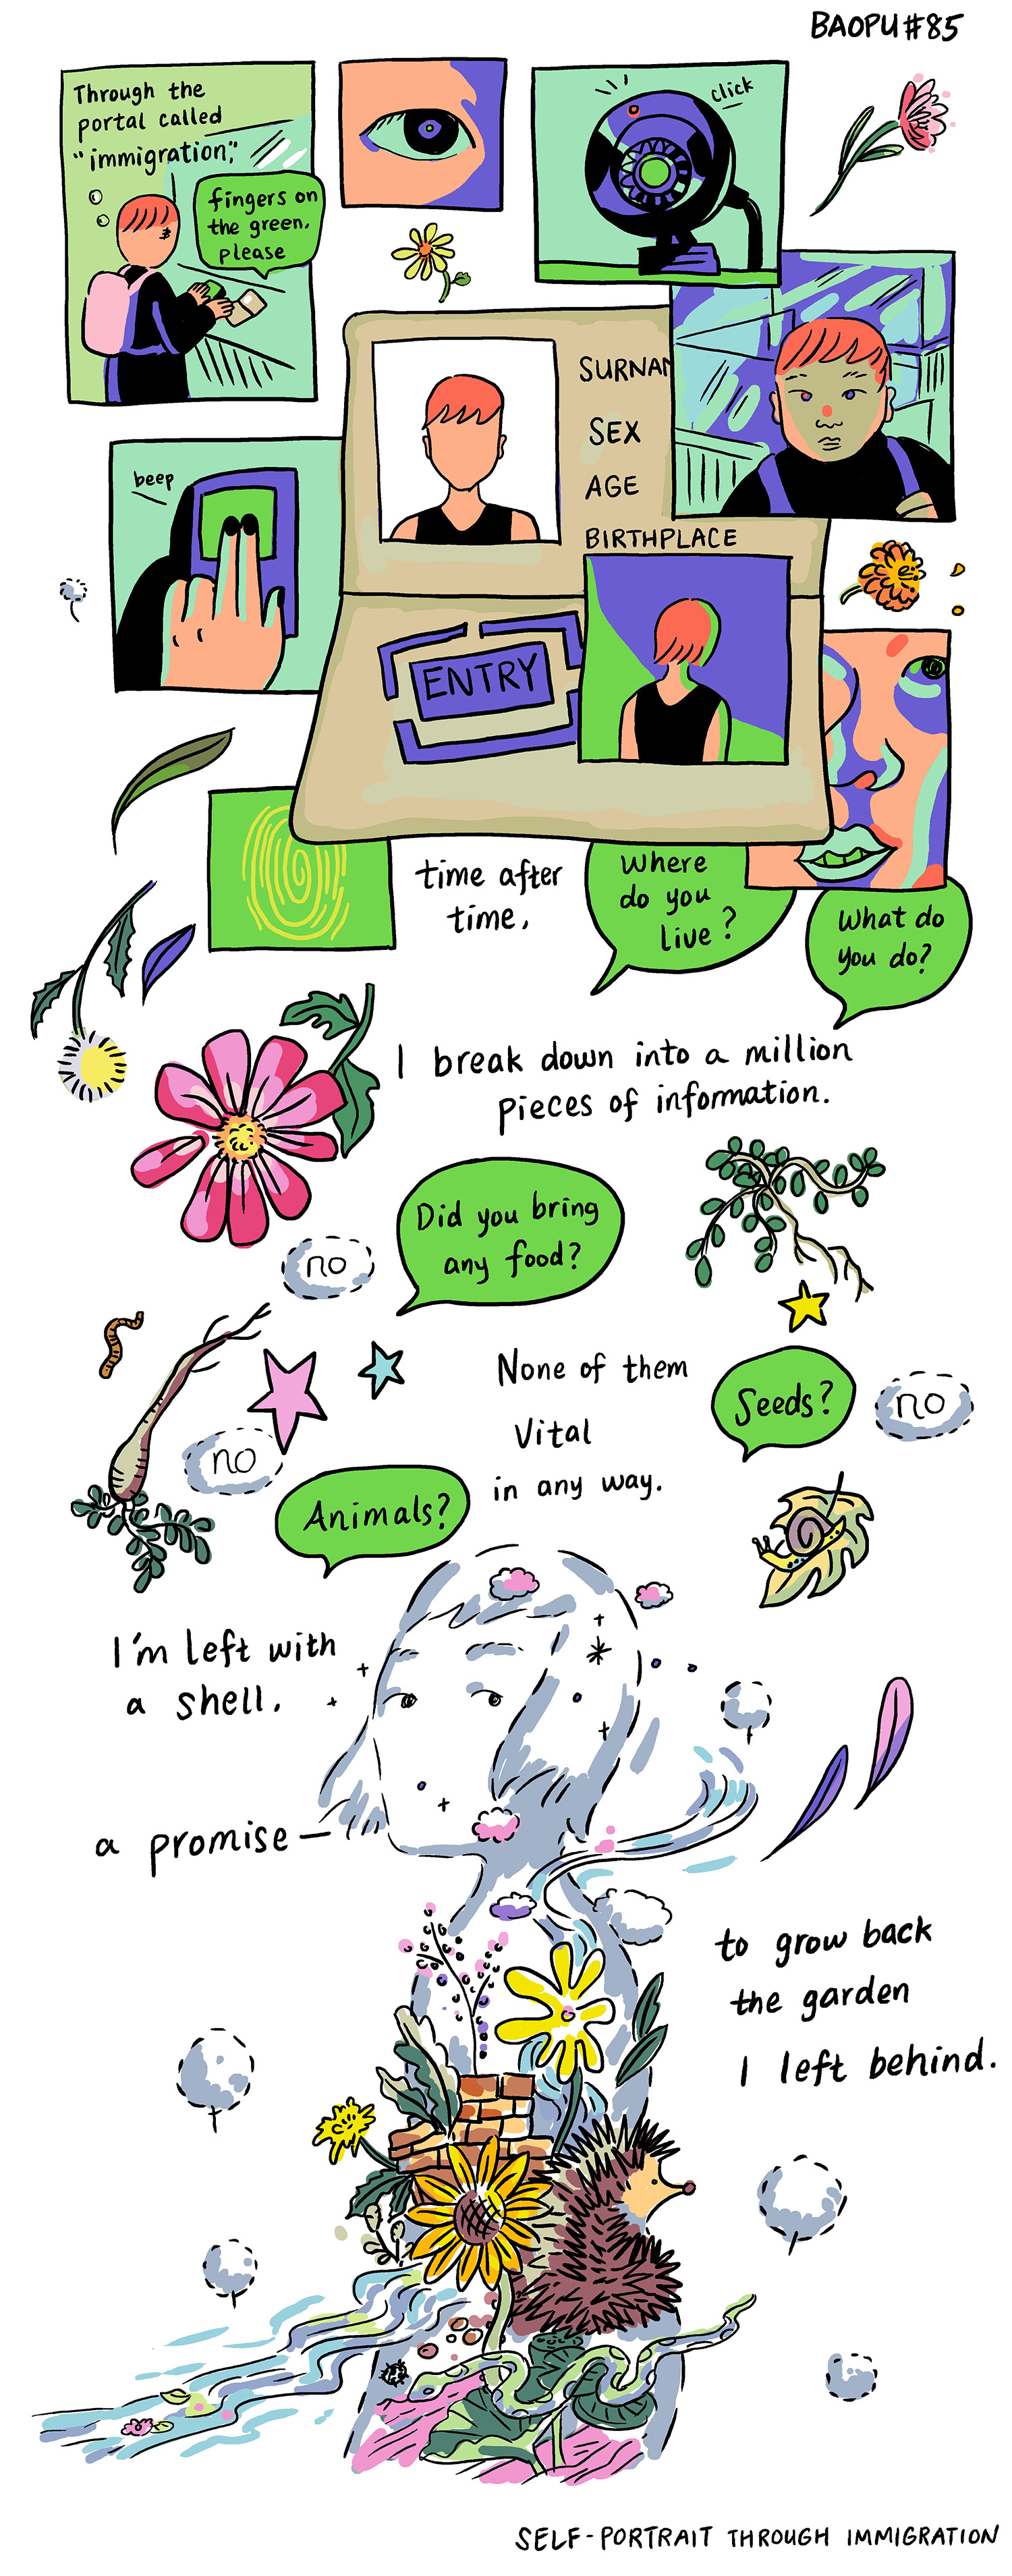 BAOPU#85
Through the
portal called
"immigration,"
fingers on
the green,
please
click
SURNAM
SEX
AGE
BIRTHPLACE
beep
ENTRY
time after
time,
Where
do you
live?
What do
you do?
I break down into a million
pieces of information.
Did you bring
any food?
no
None of them
Vital
in any way.
Seeds?
no
no
Animals?
I'm left with
a shell.
a promise—
to grow back
the garden
I left behind.
SELF-PORTRAIT THROUGH IMMIGRATION